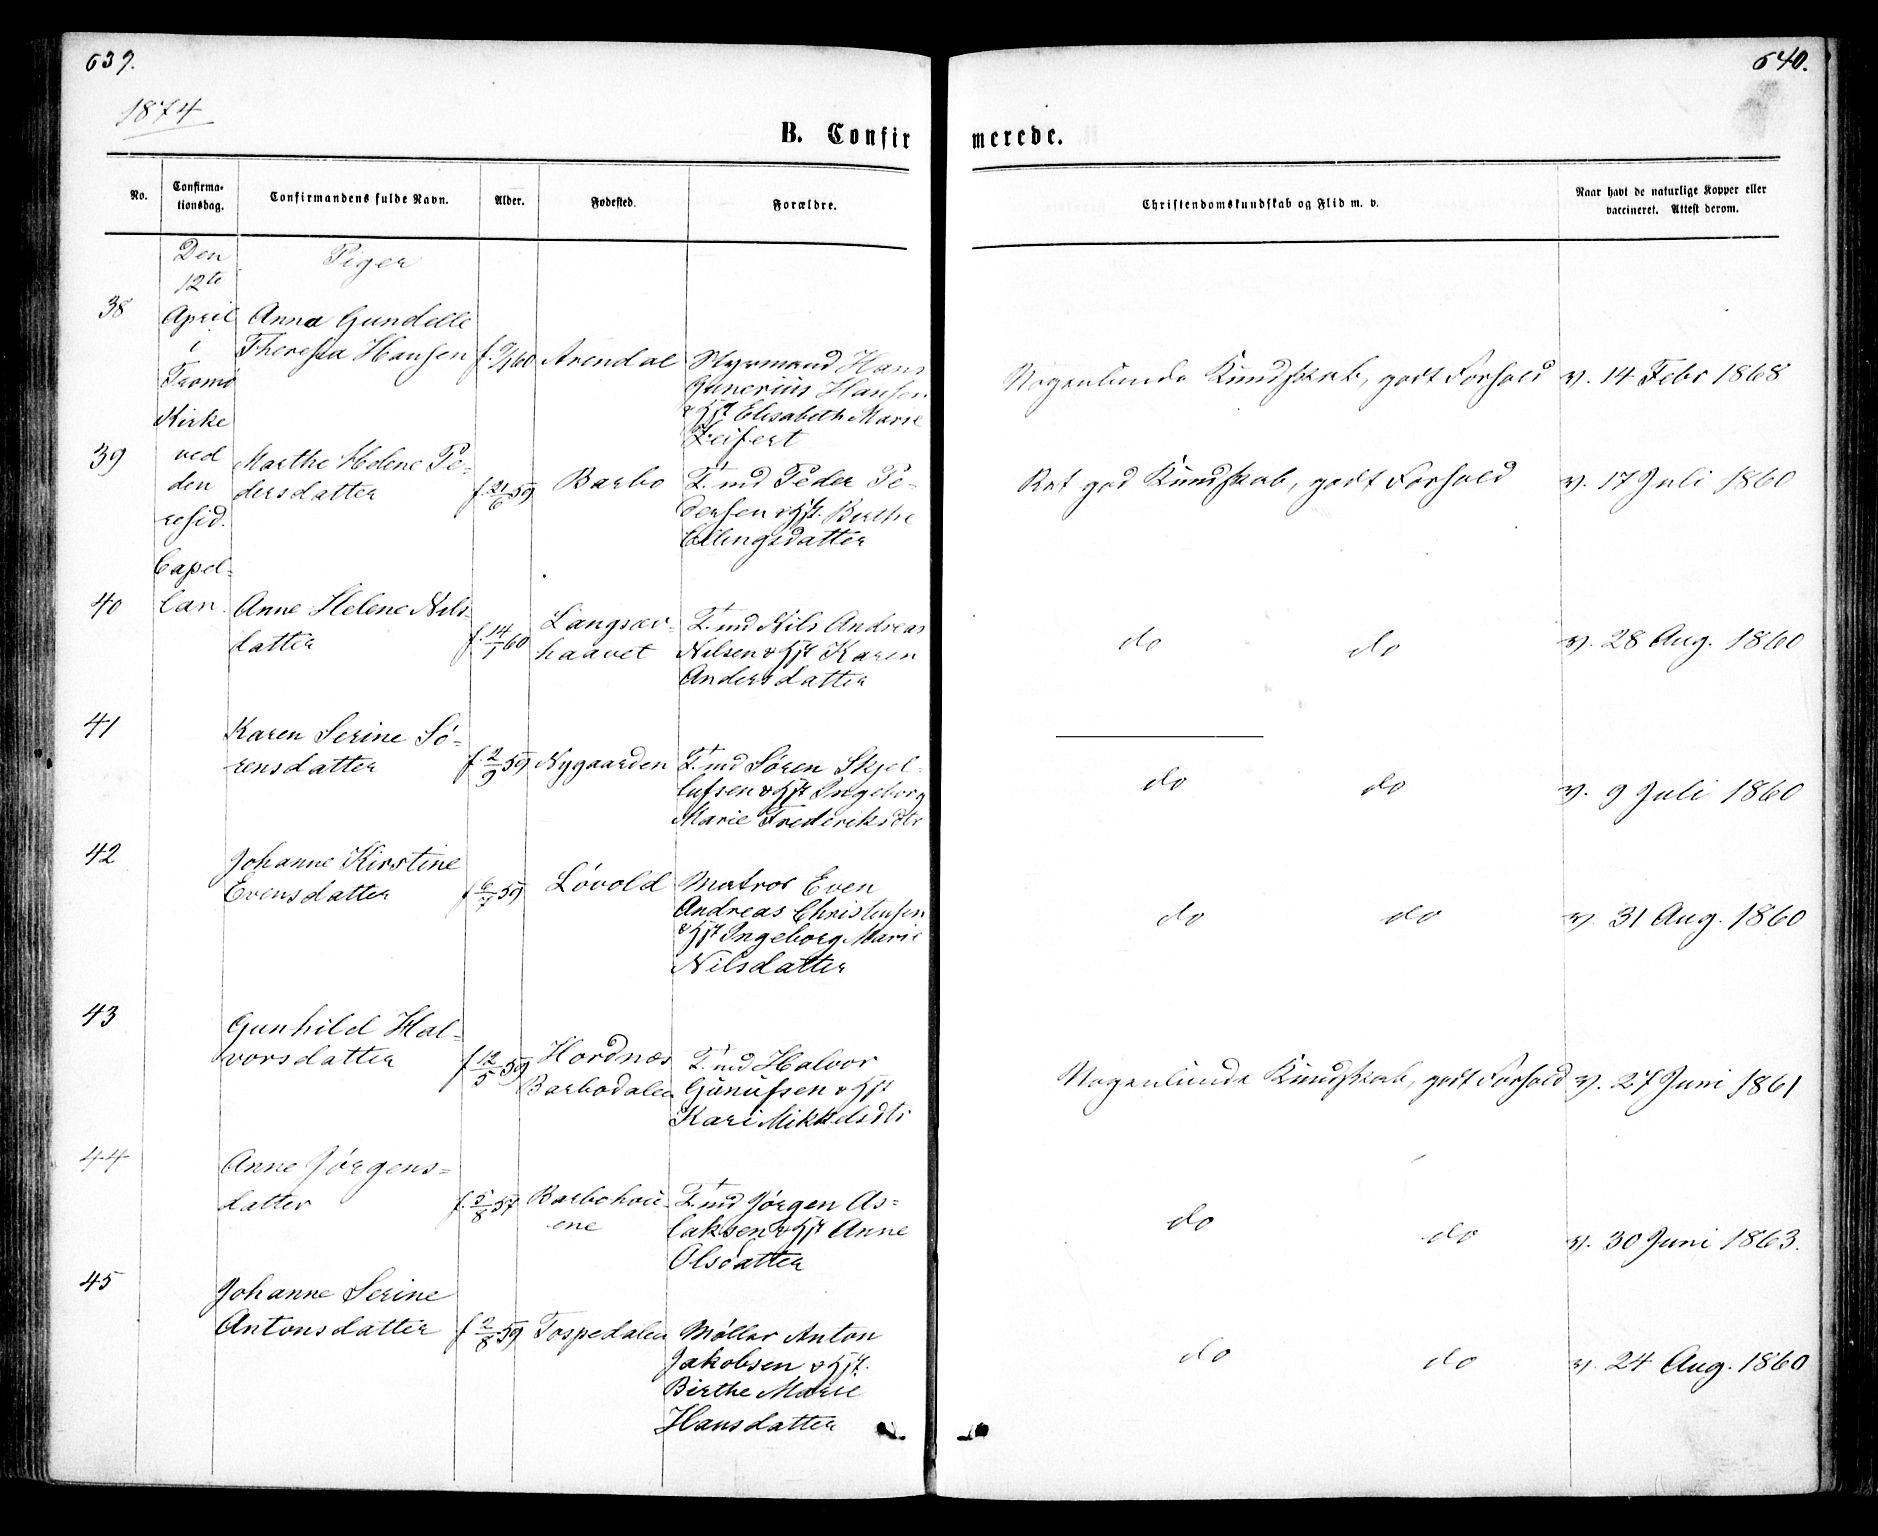 639.
640.
1874
B. Confirmerede.
No.
Confirma-
tionsdag.
Confirmandens fulde Navn.
Alder.
Fødested.
Forældre.
Christendomskundskab og Flid m. v.
Naar havt de naturlige Kopper eller
vaccineret. Attest derom.
Den
12te
April
i
Tromø
Kirke
ved
den
resid.
Capel-
lan.
Piger
38
Anna Gundelle
Theresia Hansen
60
Arendal
Styrmand Hans
Gunerius Hansen
& Hst Elisabeth Marie
Zeifert
Nogenlunde Kundskab, godt Forhold
v. 14 Febr 1868
39
Marthe Helene Pe-
dersdatter
f. 21/6 59
Barbo
T.md Peder Pe-
dersen & Hst. Birthe
Ellingsdatter
Ret god Kundskab, godt Forhold
v. 17 Juli 1860
40
Anne Helene Nils-
datter
f. 14/1 60
Langsæv-
haavet
T.md Nils Andreas
Nilsen & Hst Karen
Andersdatter
do do
v. 28 Aug. 1860
41
Karen Serine Sø-
rensdatter
f. 2/9 59
Nygaarden
T.md Søren Skjel-
lufsen & Hst Ingeborg
Marie Frederiksdtr
do do
v. 9 Juli 1860
42
Johanne Kirstine
Evensdatter
f 6/7 59
Løvold
Matros Even
Andreas Christensen
& Hst Ingeborg Marie
Nilsdatter
do do
v. 31 Aug. 1860
43
Gunhild Hal-
vorsdatter
f. 12/5 59
Hordnæs
Barbodalen
T.md Halvor
Gunufsen & Hst
Kari Mikkelsdtr
Nogenlunde Kundskab, godt Forhold
v. 27 Juni 1861
44
Anne Jørgens-
datter
f. 5/8 57
Barbohei-
ene
T.md Jørgen As-
laksen & Hst Anne
Olsdatter
do do
v. 30 Juni 1863.
45
Johanne Serine
Antonsdatter
f 2/8 59
Tospedalen
Møller Anton
Jakobsen & Hst.
Birthe Marie
Hansdatter
do do
v. 24 Aug. 1860